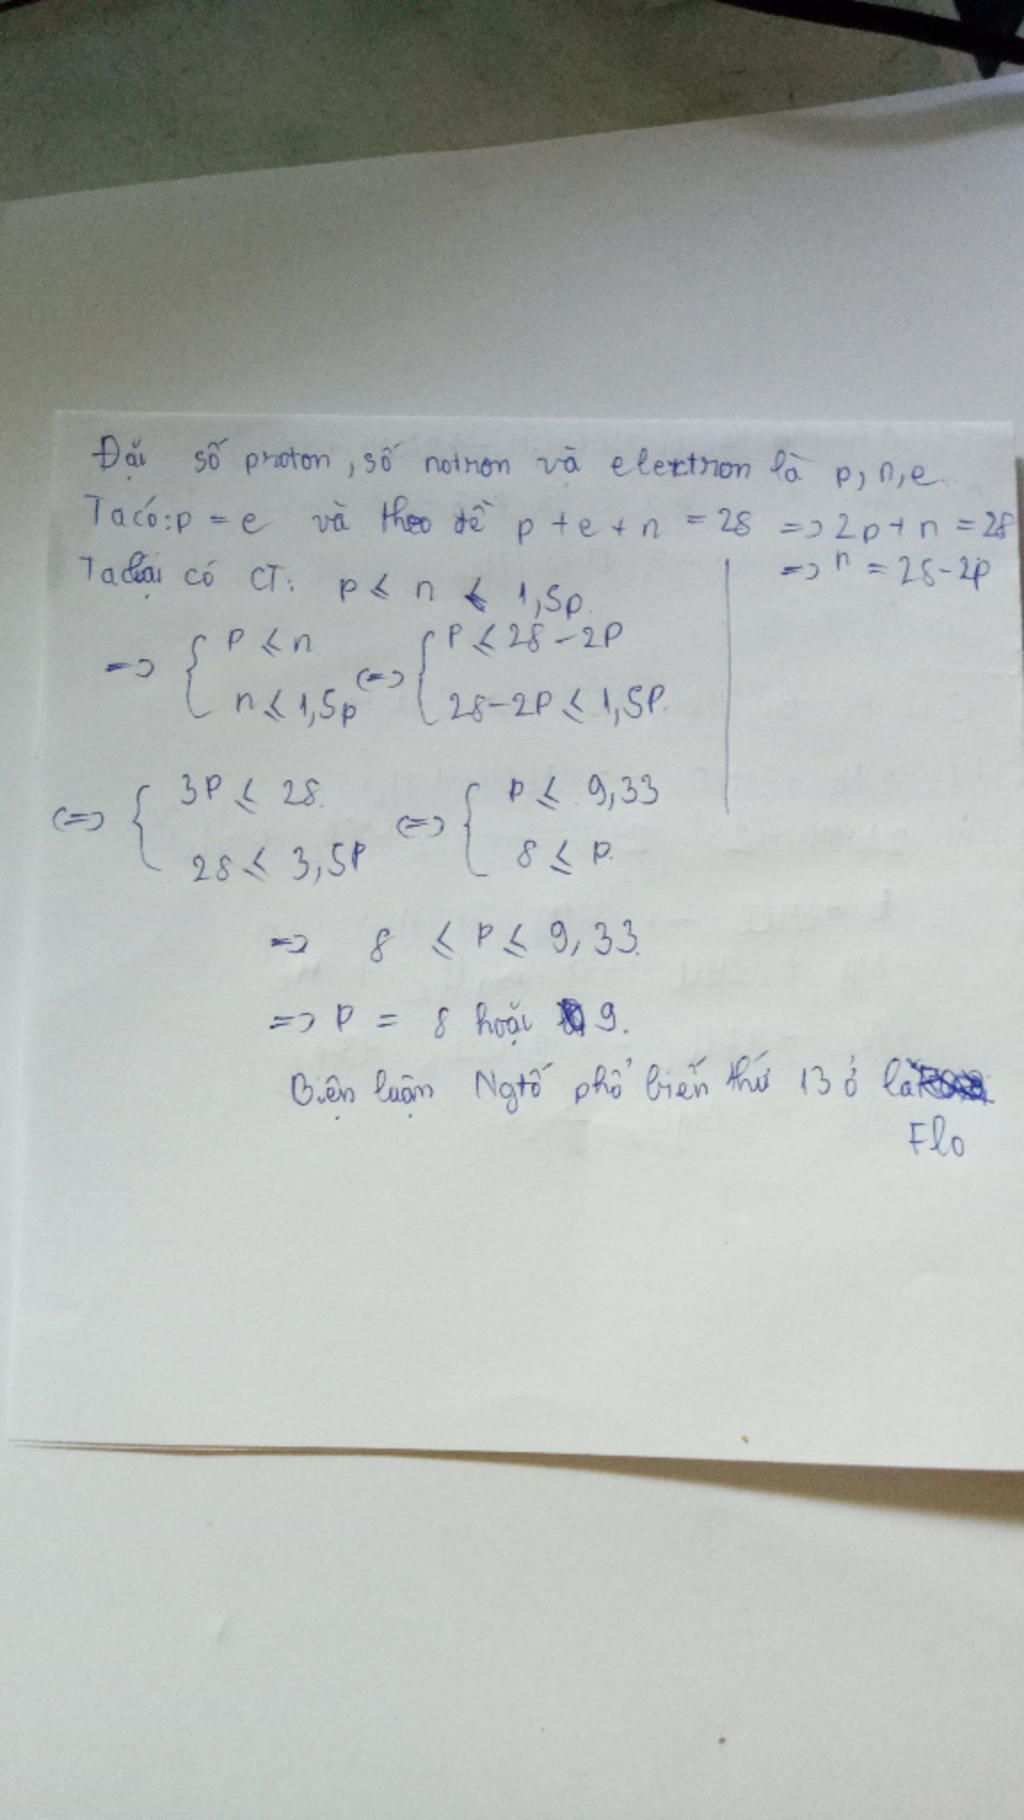 Đặt số proton, số notron và elextron là p, n, e.
Ta có: p = e và theo đề p + e + n = 28 => 2p + n = 28
=> n = 28 - 2p
Ta lại có CT: p ≤ n ≤ 1,5p.
=> { p ≤ n <=> { p ≤ 28 - 2p
n ≤ 1,5p 28 - 2p ≤ 1,5p.
<=> { 3p ≤ 28. <=> { p ≤ 9,33
28 ≤ 3,5p 8 ≤ p.
=> 8 ≤ p ≤ 9,33.
=> p = 8 hoặc 9.
Biện luận Ngtố phổ biến thứ 13 ở là
Flo